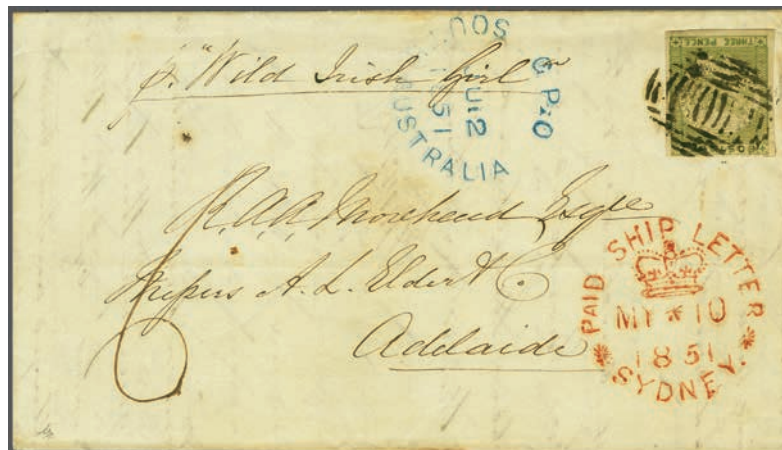 p. "Wild Irish Girl"
G.P.O
SOU
U 12
1851
AUSTRALIA
THREE PENCE
POST
R.A.A. Morehead Esqre
Messrs A. L. Elder & Co
Adelaide
6
PAID SHIP LETTER
MY * 10
1851
SYDNEY